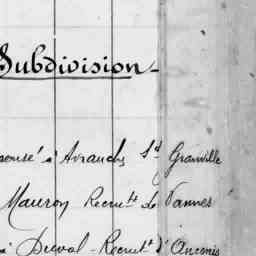 Subdivision
à Avranches Sd Granville
Mauron Recrutt de Vannes
à Derval - Recrutt d'Ancenis